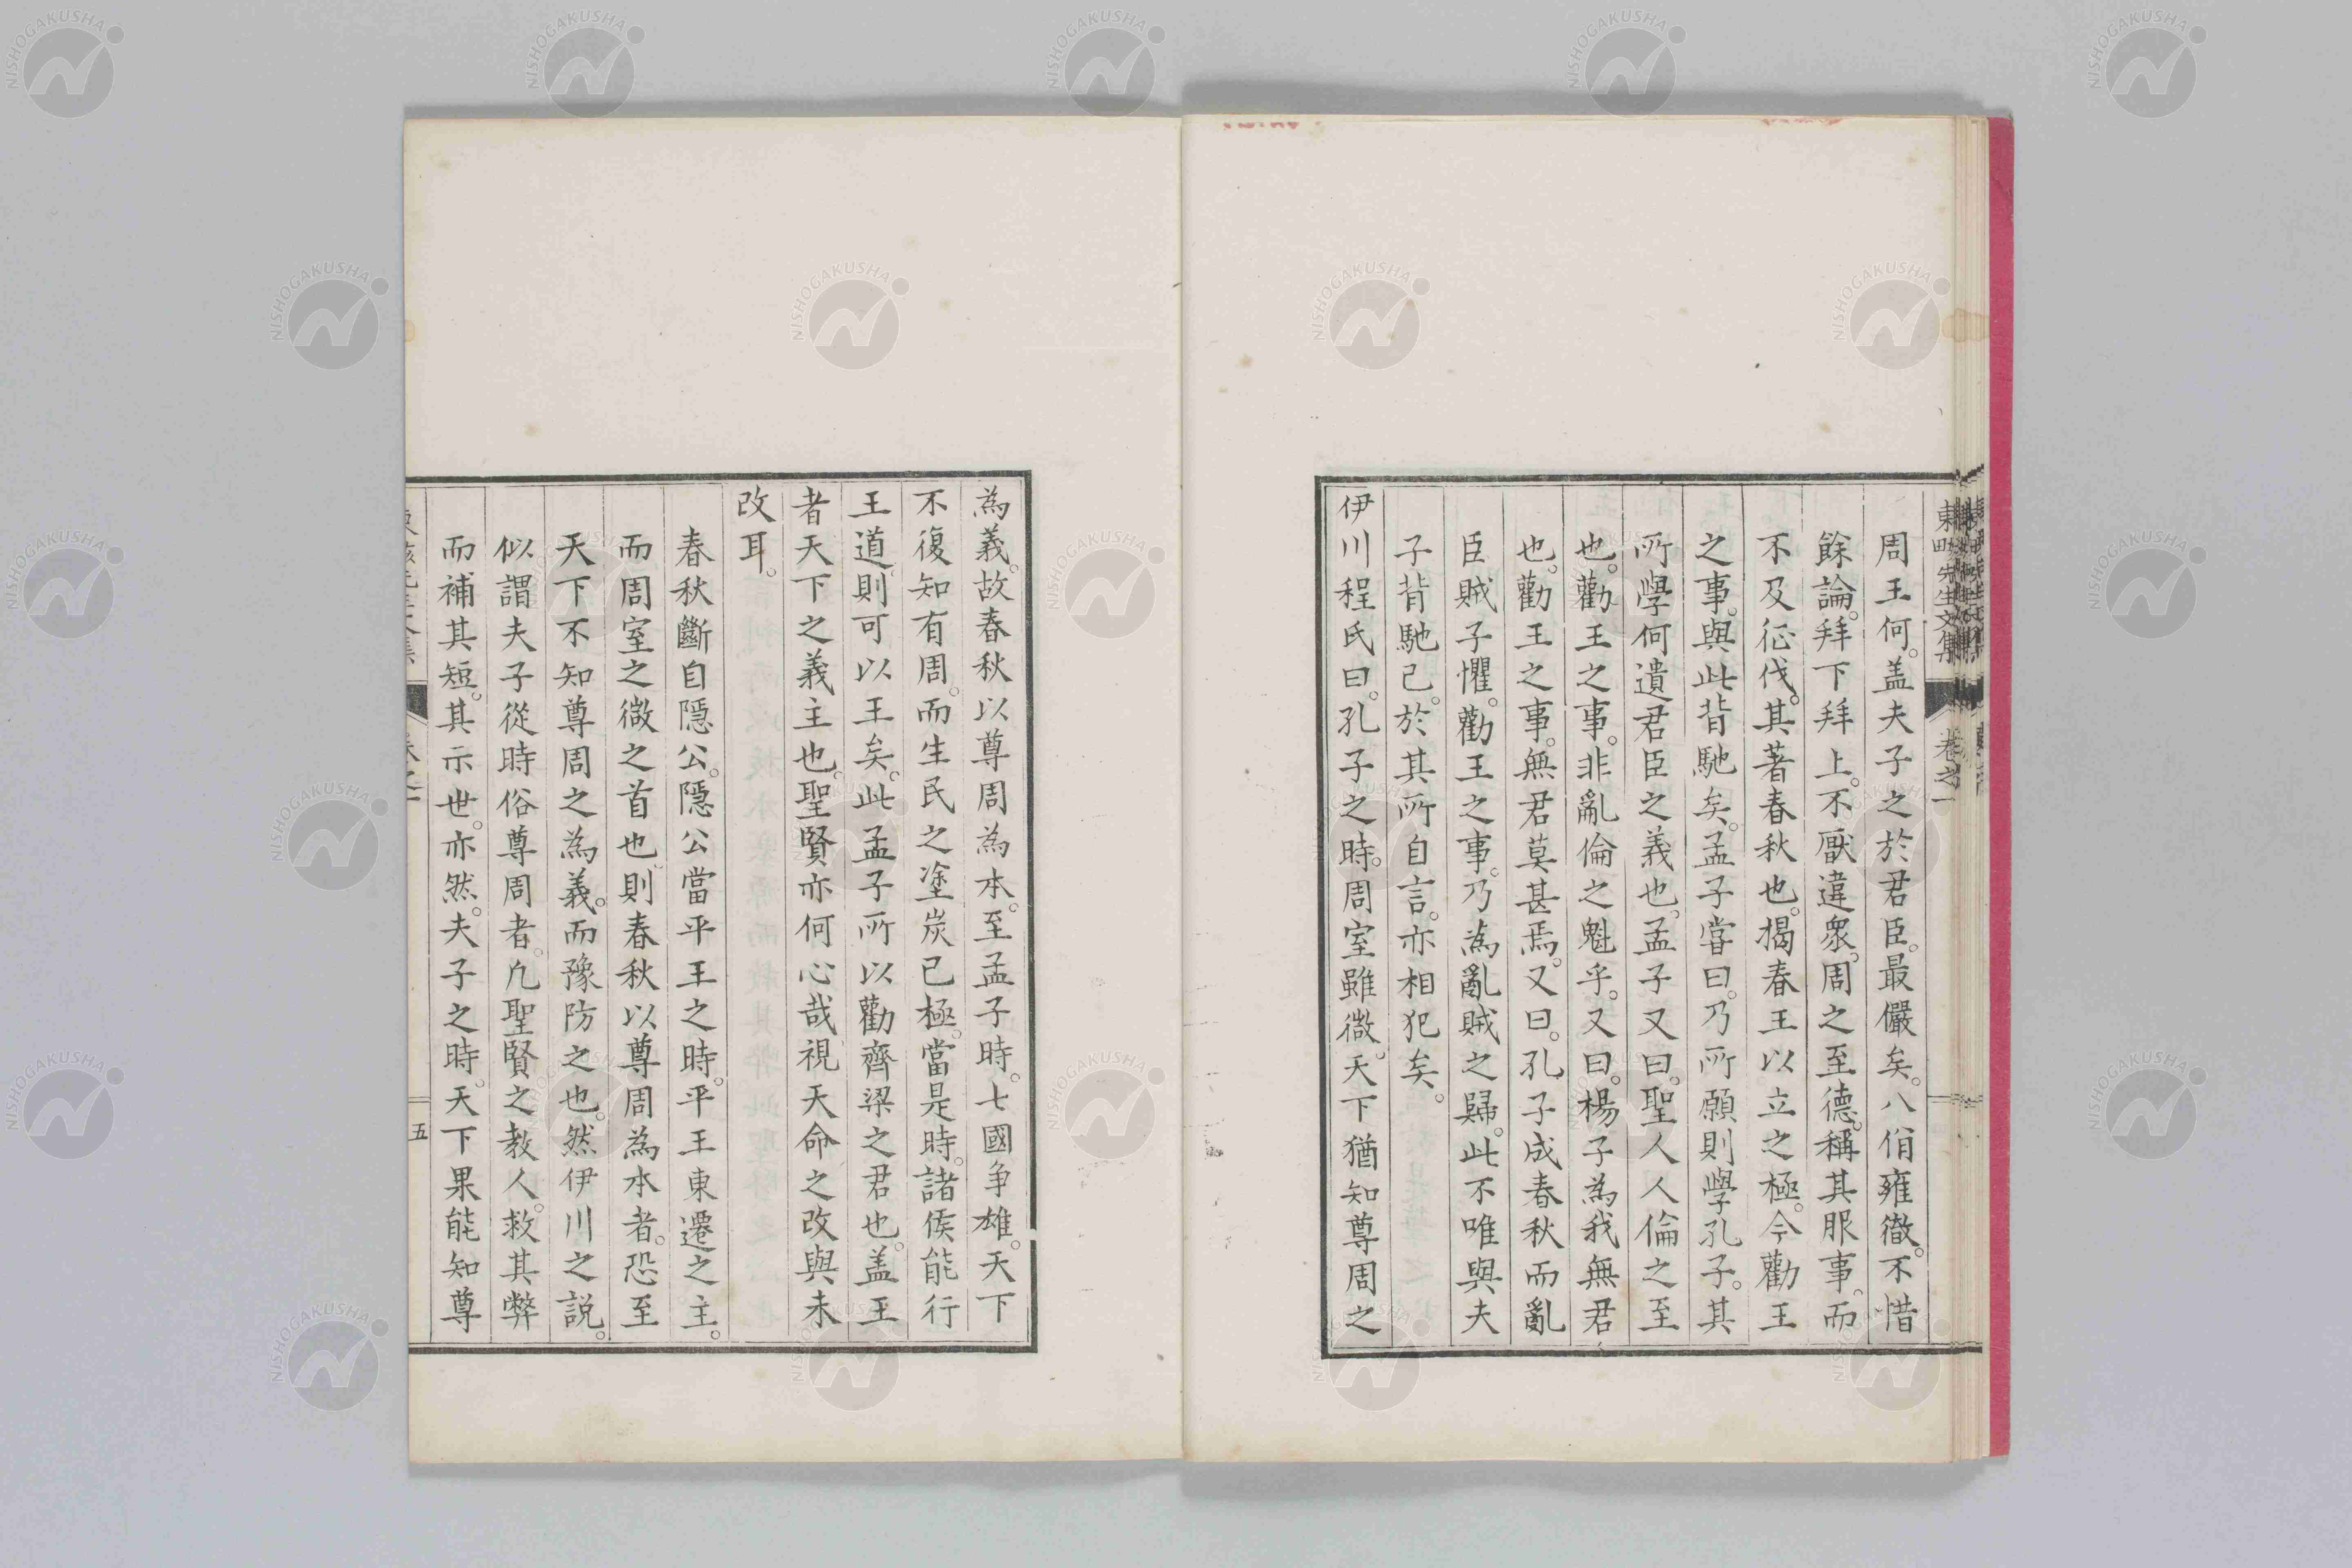 周王何。盖夫子之於君臣。最儼矣。八佾雍徹。不惜
餘論。拜下拜上。不厭違衆。周之至德。稱其服事。而
不及征伐。其著春秋也。揭春王以立之極。今勸王
之事。與此背馳矣。孟子嘗曰。乃所願則學孔子。其
所學何遺君臣之義也。孟子又曰。聖人人倫之至
也。勸王之事。非亂倫之魁乎。又曰。楊子為我無君
也。勸王之事。無君莫甚焉。又曰。孔子成春秋而亂
臣賊子懼。勸王之事。乃為亂賊之歸。此不唯與夫
子背馳已。於其所自言。亦相犯矣。
伊川程氏曰。孔子之時。周室雖微。天下猶知尊周之
為義。故春秋以尊周為本。至孟子時。七國争雄。天下
不復知有周。而生民之塗炭已極。當是時。諸侯能行
王道。則可以王矣。此孟子所以勸齊梁之君也。盖王
者天下之義主也。聖賢亦何心哉。視天命之改與未
改耳。
春秋斷自隱公。隱公當平王之時。平王東遷之主。
而周室之微之首也。則春秋以尊周為本者。恐至
天下不知尊周之為義。而豫防之也。然伊川之説。
似謂夫子從時俗尊周者。凡聖賢之教人。救其弊
而補其短。其示世。亦然。夫子之時。天下果能知尊
五
先生文集
卷之一
NISHOGAKUSHA